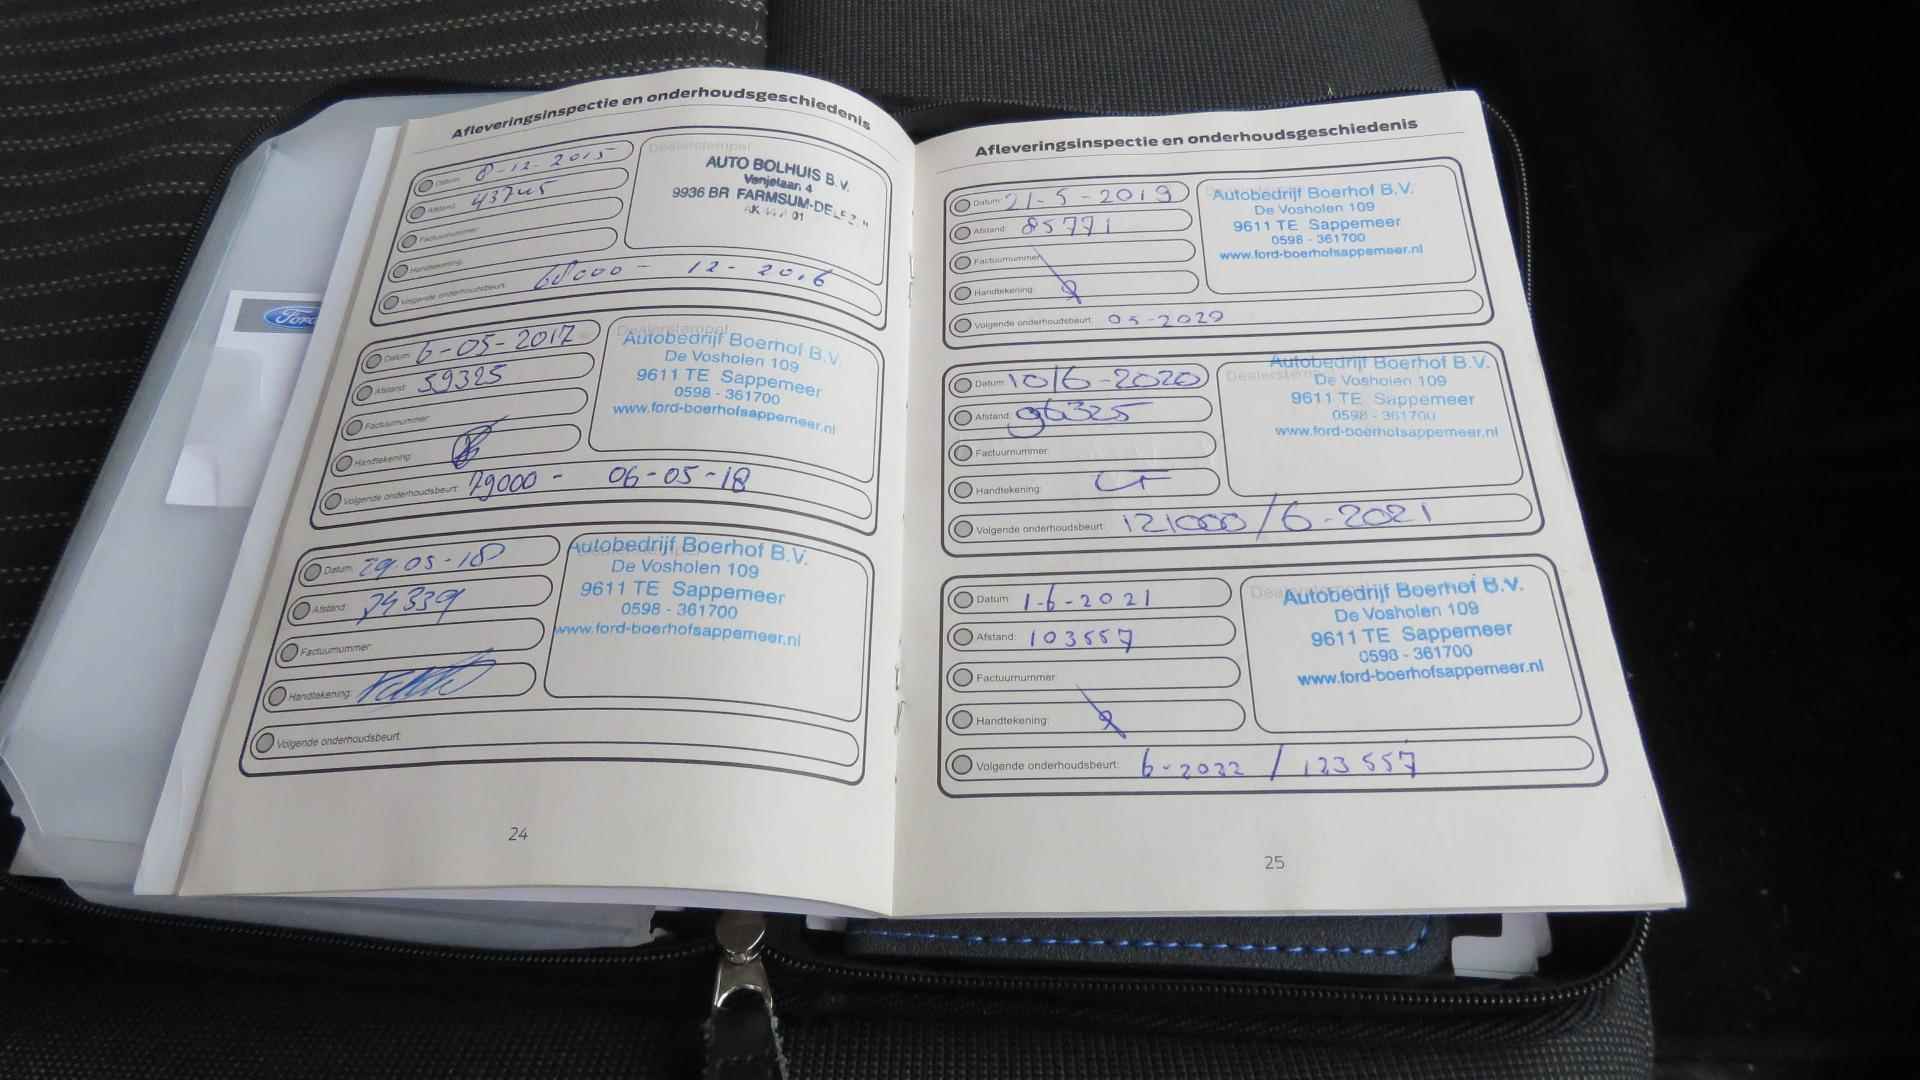 Ford
Afleveringsinspectie en onderhoudsgeschiedenis
Datum: 8-12-2015
Afstand: 43745
Factuurnummer:
Handtekening:
Volgende onderhoudsbeurt: 12-2016
Dealerstempel
AUTO BOLHUIS B.V.
Venjelaan 4
9936 BR FARMSUM-DELFZIJL
Datum: 6-05-2017
Afstand: 59325
Factuurnummer:
Handtekening:
Volgende onderhoudsbeurt: 79000 - 06-05-18
Dealerstempel
Autobedrijf Boerhof B.V.
De Vosholen 109
9611 TE Sappemeer
0598 - 361700
www.ford-boerhofsappemeer.nl
Datum: 29-05-18
Afstand: 74339
Factuurnummer:
Handtekening:
Volgende onderhoudsbeurt:
Autobedrijf Boerhof B.V.
De Vosholen 109
9611 TE Sappemeer
0598 - 361700
www.ford-boerhofsappemeer.nl
24
Afleveringsinspectie en onderhoudsgeschiedenis
Datum: 21-5-2019
Afstand: 85771
Factuurnummer:
Handtekening:
Volgende onderhoudsbeurt: 05-2020
Autobedrijf Boerhof B.V.
De Vosholen 109
9611 TE Sappemeer
0598 - 361700
www.ford-boerhofsappemeer.nl
Datum: 10/6-2020
Afstand: 96325
Factuurnummer:
Handtekening:
Volgende onderhoudsbeurt: 121000/6-2021
Dealerstempel
Autobedrijf Boerhof B.V.
De Vosholen 109
9611 TE Sappemeer
0598 - 361700
www.ford-boerhofsappemeer.nl
Datum: 1-6-2021
Afstand: 103557
Factuurnummer:
Handtekening:
Volgende onderhoudsbeurt: 6-2022 / 123557
Autobedrijf Boerhof B.V.
De Vosholen 109
9611 TE Sappemeer
0598 - 361700
www.ford-boerhofsappemeer.nl
25